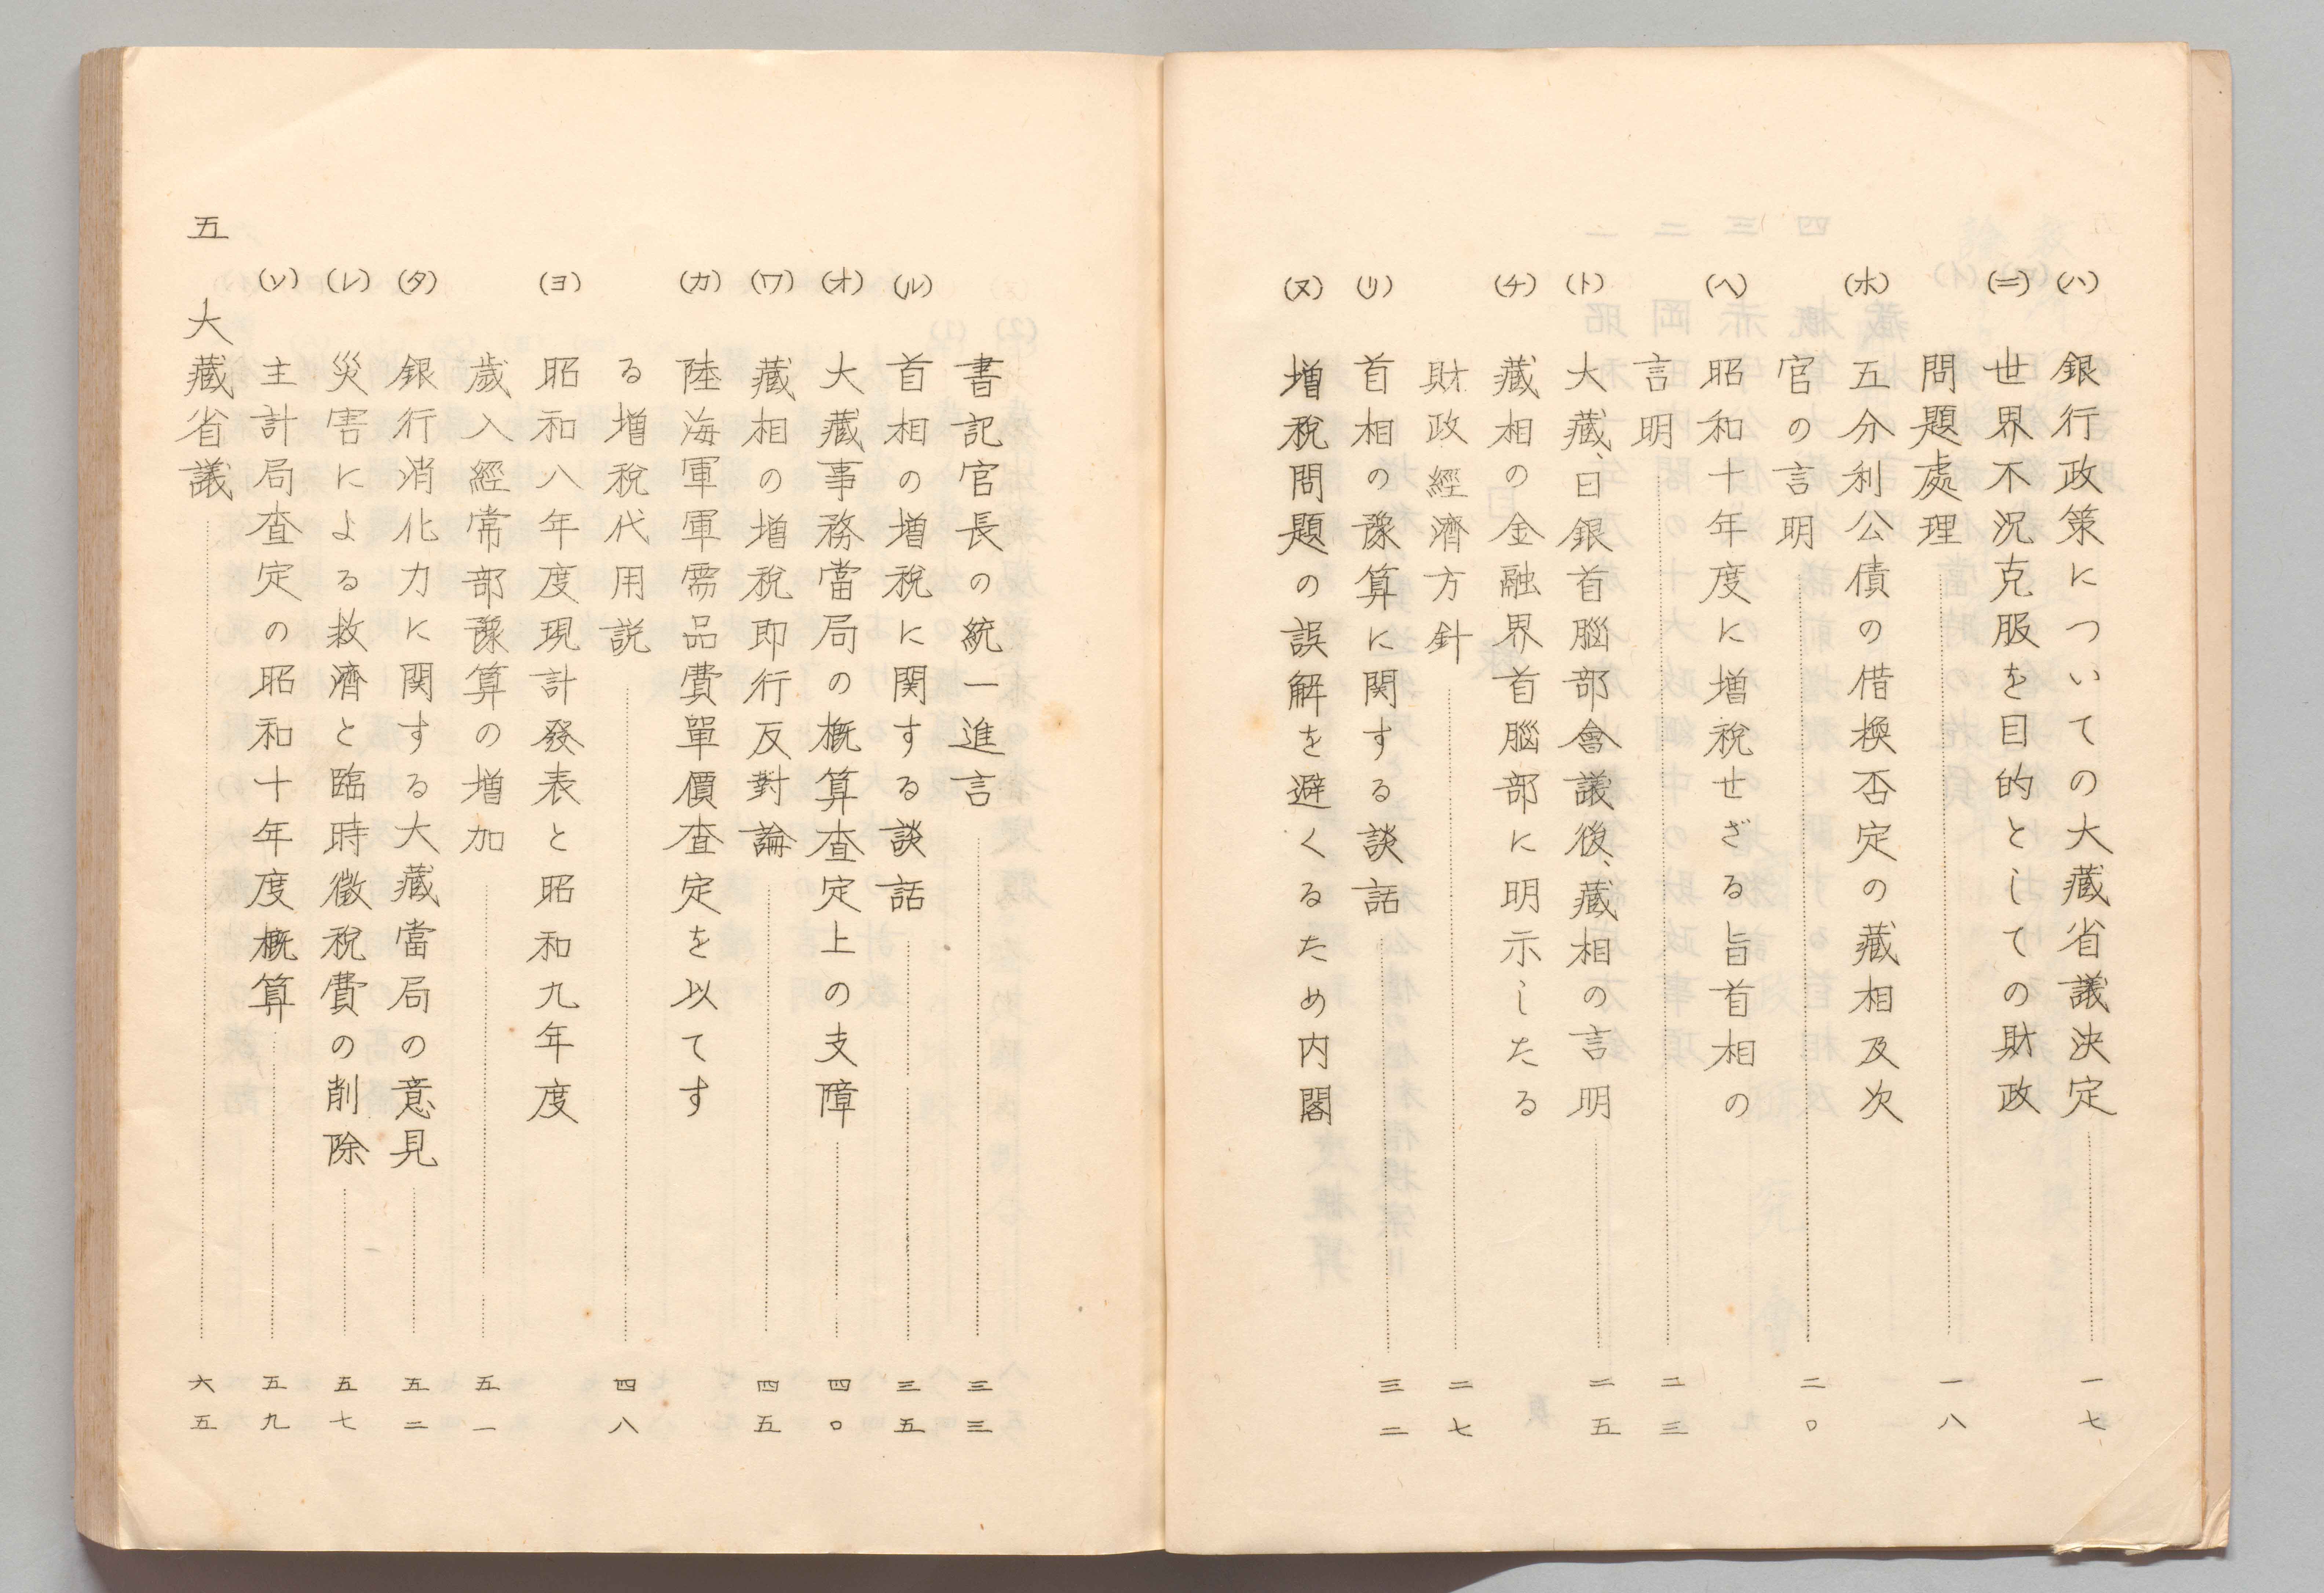 (ハ) 銀行政策についての大藏省議決定 一七
(ニ) 世界不況克服を目的としての財政
問題處理 一八
(ホ) 五分利公債の借換否定の藏相及次
官の言明 二〇
(ヘ) 昭和十年度に増税せざる旨首相の
言明 二三
(ト) 大藏、日銀首腦部會議後、藏相の言明 二五
(チ) 藏相の金融界首腦部に明示したる
財政經濟方針 二七
(リ) 首相の豫算に関する談話 三二
(ヌ) 増税問題の誤解を避くるため内閣
書記官長の統一進言 三三
(ル) 首相の増税に関する談話 三五
(オ) 大藏事務當局の概算査定上の支障 四〇
(ワ) 藏相の増税即行反對論 四五
(カ) 陸海軍軍需品費單價査定を以てす
る増税代用説 四八
(ヨ) 昭和八年度現計發表と昭和九年度
歳入經常部豫算の増加 五一
(タ) 銀行消化力に関する大藏當局の意見 五二
(レ) 災害による救濟と臨時徴税費の削除 五七
(ソ) 主計局査定の昭和十年度概算 五九
五 大藏省議 六五